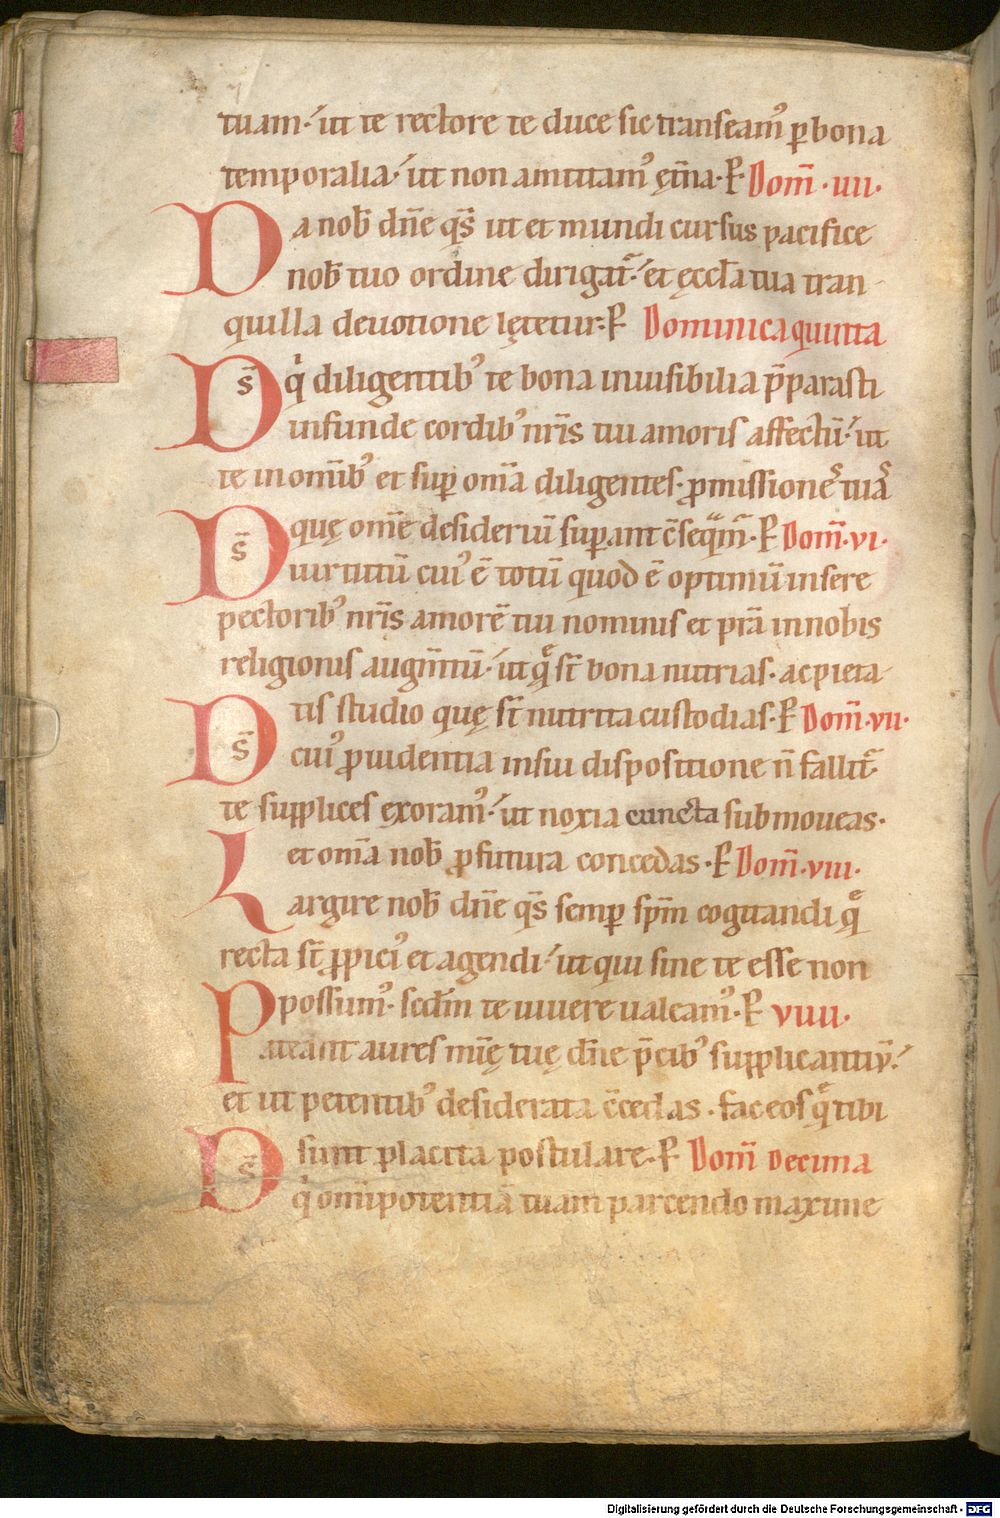 tuam· ut te rectore te duce sic transeam᷒ ꝑ bona
temporalia· ut non amittam᷒ ęt̄na· P̄ Dom̄ · iiii·
Da nob̄ dn̄e qs̄ ut et mundi cursus pacifice
nob̄ tuo ordine dirigat᷑· et ęccl̄a tua tran-
quilla deuotione lętetur· P̄ Dominica quinta
Ds̄ q̇ diligentib᷒ te bona inuisibilia p̄parasti
infunde cordib᷒ nr̄is tui amoris affectū· ut
te in omīb᷒ et suꝑ om̄a diligentes· ꝓmissione᷑ tuā
quę om̄e desideriū suꝑant c̄seq̄m̄᷑· P̄ Dom̄·vi·
Ds̄ uirtutū cui᷒ ē totū quod ē optimū insere
pectorib᷒ nr̄is amorē tui nominis et pr̄a in nobis
religionis augm̄tū· ut q̄ st̄ bona nutrias· ac pieta
tis studio quę st̄ nutrita custodias· P̄ Dom̄·vii·
Ds̄ cui᷒ ꝓuidentia in sui dispositione n̄ fallit᷑
te supplices exoram᷒· ut noxia cuncta submoueas·
et om̄a nob̄ ꝓfutura concedas· P̄ Dom̄·viii·
Largire nob̄ dn̄e qs̄ semꝑ spm̄ cogitandi q̄
recta st̄ ꝓpici᷒ et agendi· ut qui sine te esse non
possum᷒· scd̄m te uiuere ualeam᷒· P̄ viiii·
Pateant aures mīę tuę dn̄e p̄cib᷒ supplicantiū·
et ut petentib᷒ desiderata c̄cedas· fac eos q̄ tibi
sunt placita postulare· P̄ Dom̄ Decima
Ds̄ q̇ omīpotentiā tuam parcendo maxime
Digitalisierung gefördert durch die Deutsche Forschungsgemeinschaft - DFG